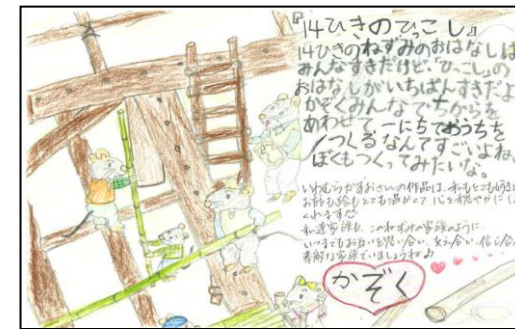 『14ひきのひっこし』
14ひきのねずみのおはなしは
みんなすきだけど、「ひっこし」の
おはなしがいちばんすきだよ
かぞくみんなでちからを
あわせて一にちでおうちを
つくるなんてすごいよね。
ぼくもつくってみたいな。
いわむらかずおさんの作品は、私もとても好きで
お話も絵もとても温かくて心を穏やかにし
くれます♡
私達家族も、このねずみの家族のように
いつまでもお互いを思い合い、支え合い、信じ合
素敵な家族でいましょうね♪
かぞく